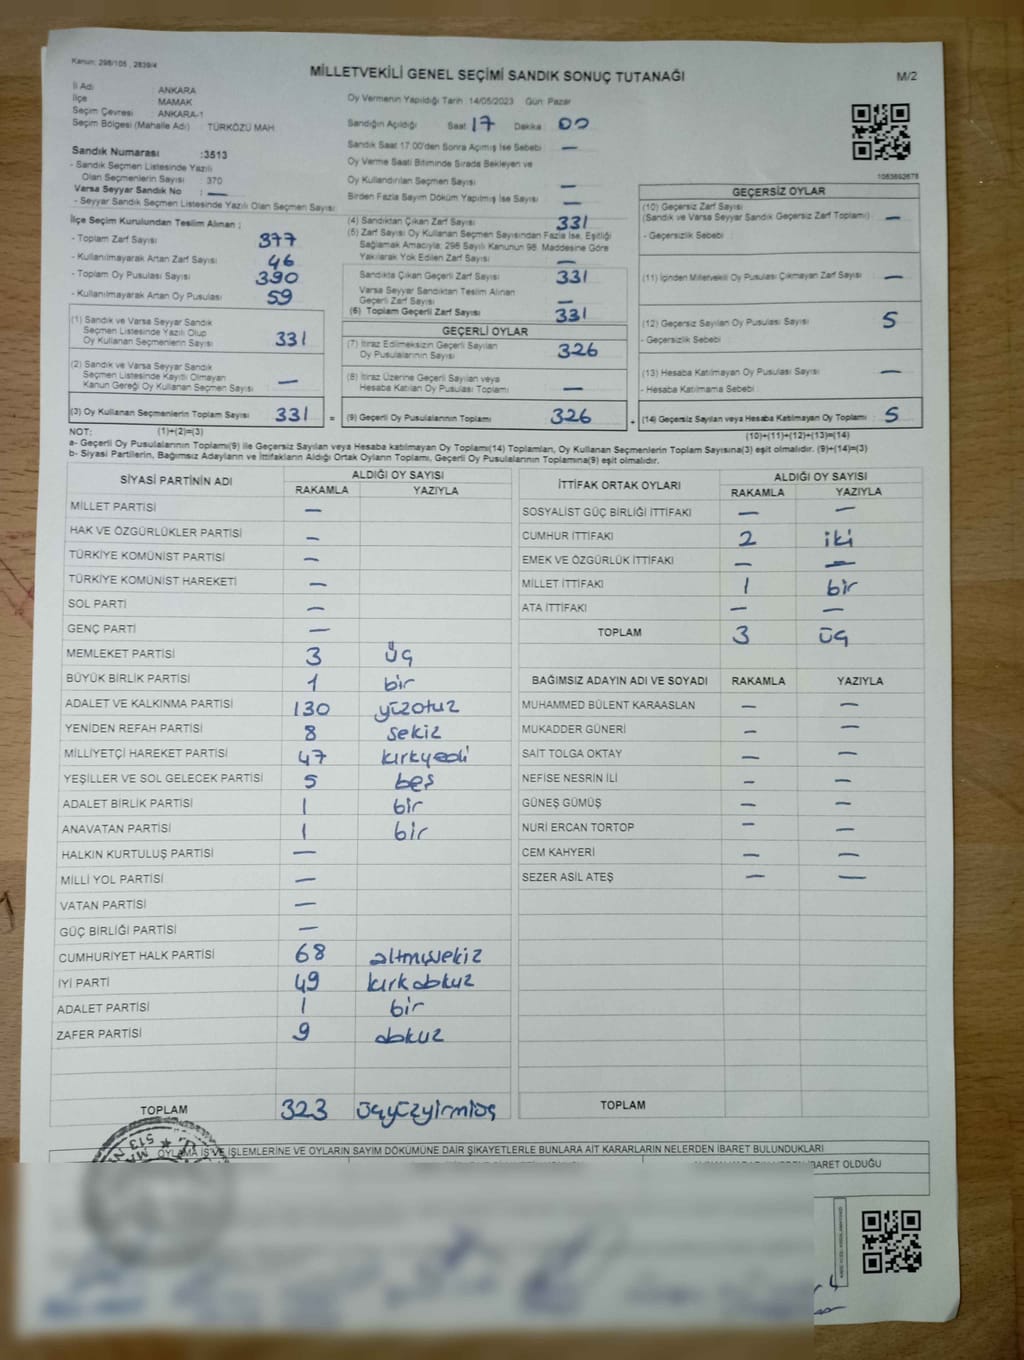 Kanun: 298/105 , 2839/4
MİLLETVEKİLİ GENEL SEÇİMİ SANDIK SONUÇ TUTANAĞI
M/2
İl Adı ANKARA
İlçe MAMAK
Seçim Çevresi ANKARA-1
Seçim Bölgesi (Mahalle Adı) : TÜRKÖZÜ MAH
Oy Vermenin Yapıldığı Tarih : 14/05/2023 Gün: Pazar
Sandığın Açıldığı Saat 17 Dakika 00
Sandık Saat 17:00'den Sonra Açılmış İse Sebebi —
Oy Verme Saati Bitiminde Sırada Bekleyen ve
Oy Kullandırılan Seçmen Sayısı : —
Birden Fazla Sayım Döküm Yapılmış İse Sayısı : —
1083692678
Sandık Numarası :3513
- Sandık Seçmen Listesinde Yazılı
Olan Seçmenlerin Sayısı : 370
Varsa Seyyar Sandık No : —
- Seyyar Sandık Listesinde Yazılı Olan Seçmen Sayısı:
İlçe Seçim Kurulundan Teslim Alınan ;
- Toplam Zarf Sayısı 377
- Kullanılmayarak Artan Zarf Sayısı : 46
- Toplam Oy Pusulası Sayısı : 390
- Kullanılmayarak Artan Oy Pusulası : 59
(1) Sandık ve Varsa Seyyar Sandık
Seçmen Listesinde Yazılı Olup
Oy Kullanan Seçmenlerin Sayısı : 331
(2) Sandık ve Varsa Seyyar Sandık
Listesinde Kayıtlı Olmayan
Kanun Gereği Oy Kullanan Seçmen Sayısı : —
(3) Oy Kullanan Seçmenlerin Toplam Sayısı : 331 =
(4) Sandıktan Çıkan Zarf Sayısı : 331
(5) Zarf Sayısı Oy Kullanan Seçmen Sayısından Fazla İse, Eşitliği
Sağlamak Amacıyla, 298 Sayılı Kanunun 98. Maddesine Göre
Yakılarak Yok Edilen Zarf Sayısı : —
Sandıkta Çıkan Geçerli Zarf Sayısı : 331
Varsa Seyyar Sandıktan Teslim Alınan
Geçerli Zarf Sayısı : —
(6) Toplam Geçerli Zarf Sayısı : 331
GEÇERLİ OYLAR
(7) İtiraz Edilmeksizin Geçerli Sayılan
Oy Pusulalarının Sayısı : 326
(8) İtiraz Üzerine Geçerli Sayılan veya
Hesaba Katılan Oy Pusulası Toplamı : —
(9) Geçerli Oy Pusulalarının Toplamı : 326 +
GEÇERSİZ OYLAR
(10) Geçersiz Zarf Sayısı
(Sandık ve Varsa Seyyar Sandık Geçersiz Zarf Toplamı) : —
- Geçersizlik Sebebi :
(11) İçinden Milletvekili Oy Pusulası Çıkmayan Zarf Sayısı : —
(12) Geçersiz Sayılan Oy Pusulası Sayısı : 5
- Geçersizlik Sebebi
(13) Hesaba Katılmayan Oy Pusulası Sayısı : —
- Hesaba Katılmama Sebebi :
(14) Geçersiz Sayılan veya Hesaba Katılmayan Oy Toplamı : 5
NOT: (1)+(2)=(3)
(10)+(11)+(12)+(13)=(14)
a- Geçerli Oy Pusulalarının Toplamı(9) ile Geçersiz Sayılan veya Hesaba katılmayan Oy Toplamı(14) Toplamları, Oy Kullanan Seçmenlerin Toplam Sayısına(3) eşit olmalıdır. (9)+(14)=(3)
b- Siyasi Partilerin, Bağımsız Adayların ve İttifakların Aldığı Ortak Oyların Toplamı, Geçerli Oy Pusulalarının Toplamına(9) eşit olmalıdır.
SİYASİ PARTİNİN ADI
ALDIĞI OY SAYISI
RAKAMLA YAZIYLA
MİLLET PARTİSİ —
HAK VE ÖZGÜRLÜKLER PARTİSİ —
TÜRKİYE KOMÜNİST PARTİSİ —
TÜRKİYE KOMÜNİST HAREKETİ —
SOL PARTİ —
GENÇ PARTİ —
MEMLEKET PARTİSİ 3 üç
BÜYÜK BİRLİK PARTİSİ 1 bir
ADALET VE KALKINMA PARTİSİ 130 yüzotuz
YENİDEN REFAH PARTİSİ 8 sekiz
MİLLİYETÇİ HAREKET PARTİSİ 47 kırkyedi
YEŞİLLER VE SOL GELECEK PARTİSİ 5 beş
ADALET BİRLİK PARTİSİ 1 bir
ANAVATAN PARTİSİ 1 bir
HALKIN KURTULUŞ PARTİSİ —
MİLLİ YOL PARTİSİ —
VATAN PARTİSİ —
GÜÇ BİRLİĞİ PARTİSİ —
CUMHURİYET HALK PARTİSİ 68 altmışsekiz
İYİ PARTİ 49 kırkdokuz
ADALET PARTİSİ 1 bir
ZAFER PARTİSİ 9 dokuz
TOPLAM 323 üçyüzyirmiüç
İTTİFAK ORTAK OYLARI
ALDIĞI OY SAYISI
RAKAMLA YAZIYLA
SOSYALİST GÜÇ BİRLİĞİ İTTİFAKI — —
CUMHUR İTTİFAKI 2 iki
EMEK VE ÖZGÜRLÜK İTTİFAKI — —
MİLLET İTTİFAKI 1 bir
ATA İTTİFAKI — —
TOPLAM 3 üç
BAĞIMSIZ ADAYIN ADI VE SOYADI RAKAMLA YAZIYLA
MUHAMMED BÜLENT KARAASLAN — —
MUKADDER GÜNERİ — —
SAİT TOLGA OKTAY — —
NEFİSE NESRİN İLİ — —
GÜNEŞ GÜMÜŞ — —
NURİ ERCAN TORTOP — —
CEM KAHYERİ — —
SEZER ASİL ATEŞ — —
TOPLAM
OYLAMA İŞ VE İŞLEMLERİNE VE OYLARIN SAYIM DÖKÜMÜNE DAİR ŞİKAYETLERLE BUNLARA AİT KARARLARIN NELERDEN İBARET BULUNDUKLARI
İBARET OLDUĞU